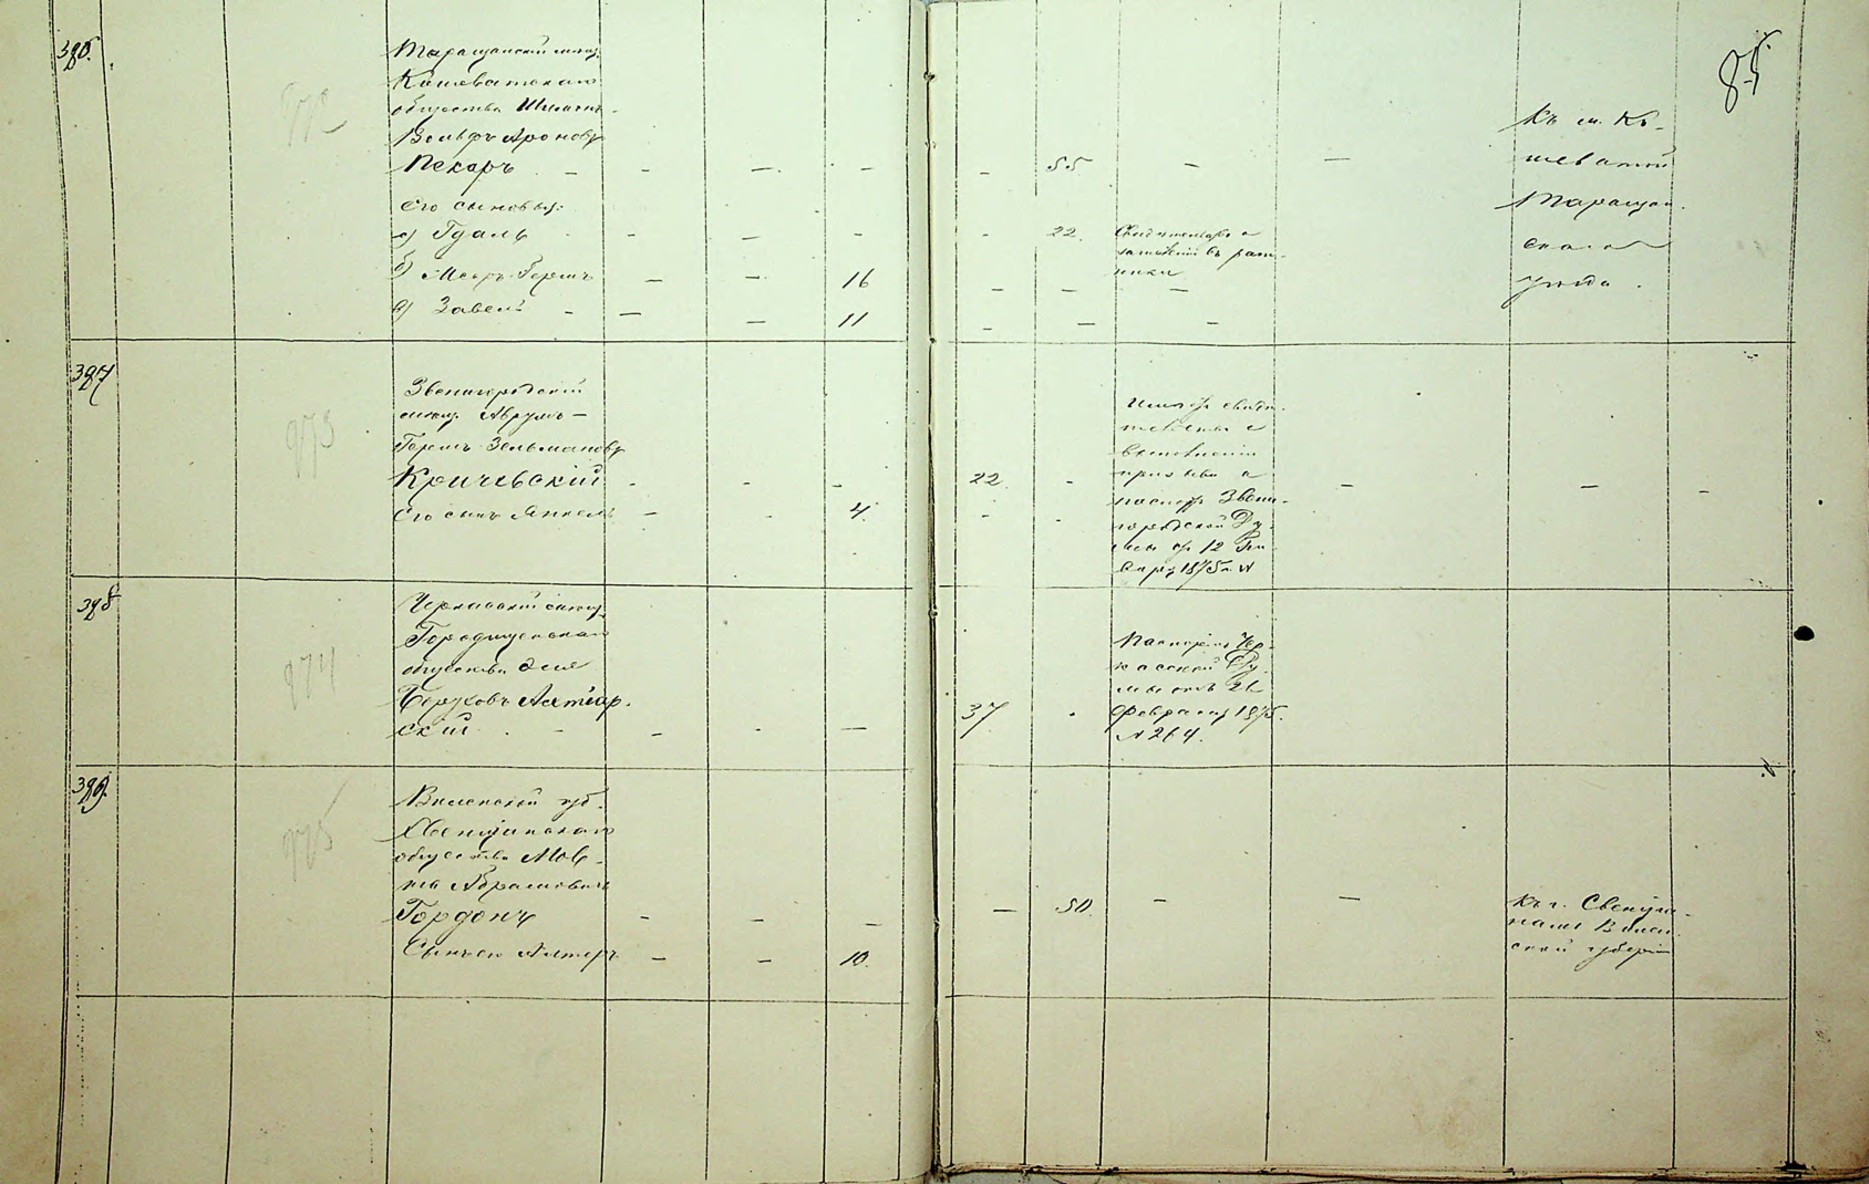 85.
396.
972
Таращанскій мѣщ.
Кошеватскаго
общества Шмилъ-
Вольфъ Ароновъ
Пекаръ - - - -
- 55 - -
Къ м. Ко-
шеватой
Таращан.
скаго
уѣзда.
Его сыновья:
а) Гдаль - - - -
- 22. Свидѣтельство о
зачисленіи въ рат-
ники
б) Мееръ-Гершъ - - 16
- - -
в) Завель - - - 11
- - -
397
973
Звенигородскій
мѣщ. Аврумъ-
Гершъ Зельмановъ
Кричевскій - - -
22. - - - -
Его сынъ Янкель - - 4.
- -
Имѣетъ свидѣ-
тельство о
выполненіи
призыва и
паспортъ Звени-
городской Ду-
мы отъ 12 Ян-
варя 1875 г. №
398
974
Черкасскій мѣщ.
Городищенскаго
общества Эля
Беруховъ Ахтіар-
скій - - - -
37
Паспортъ Чер-
касской Ду-
мы отъ 21
Февраля 1875.
№ 264.
399.
975
Виленской губ.
Свенцянскаго
общества Мов-
ша Абрамовичъ
Гордонъ - - -
- 50. - -
Къ г. Свенця-
намъ Вилен.
ской губерніи
Сынъ его Алтеръ - - 10.